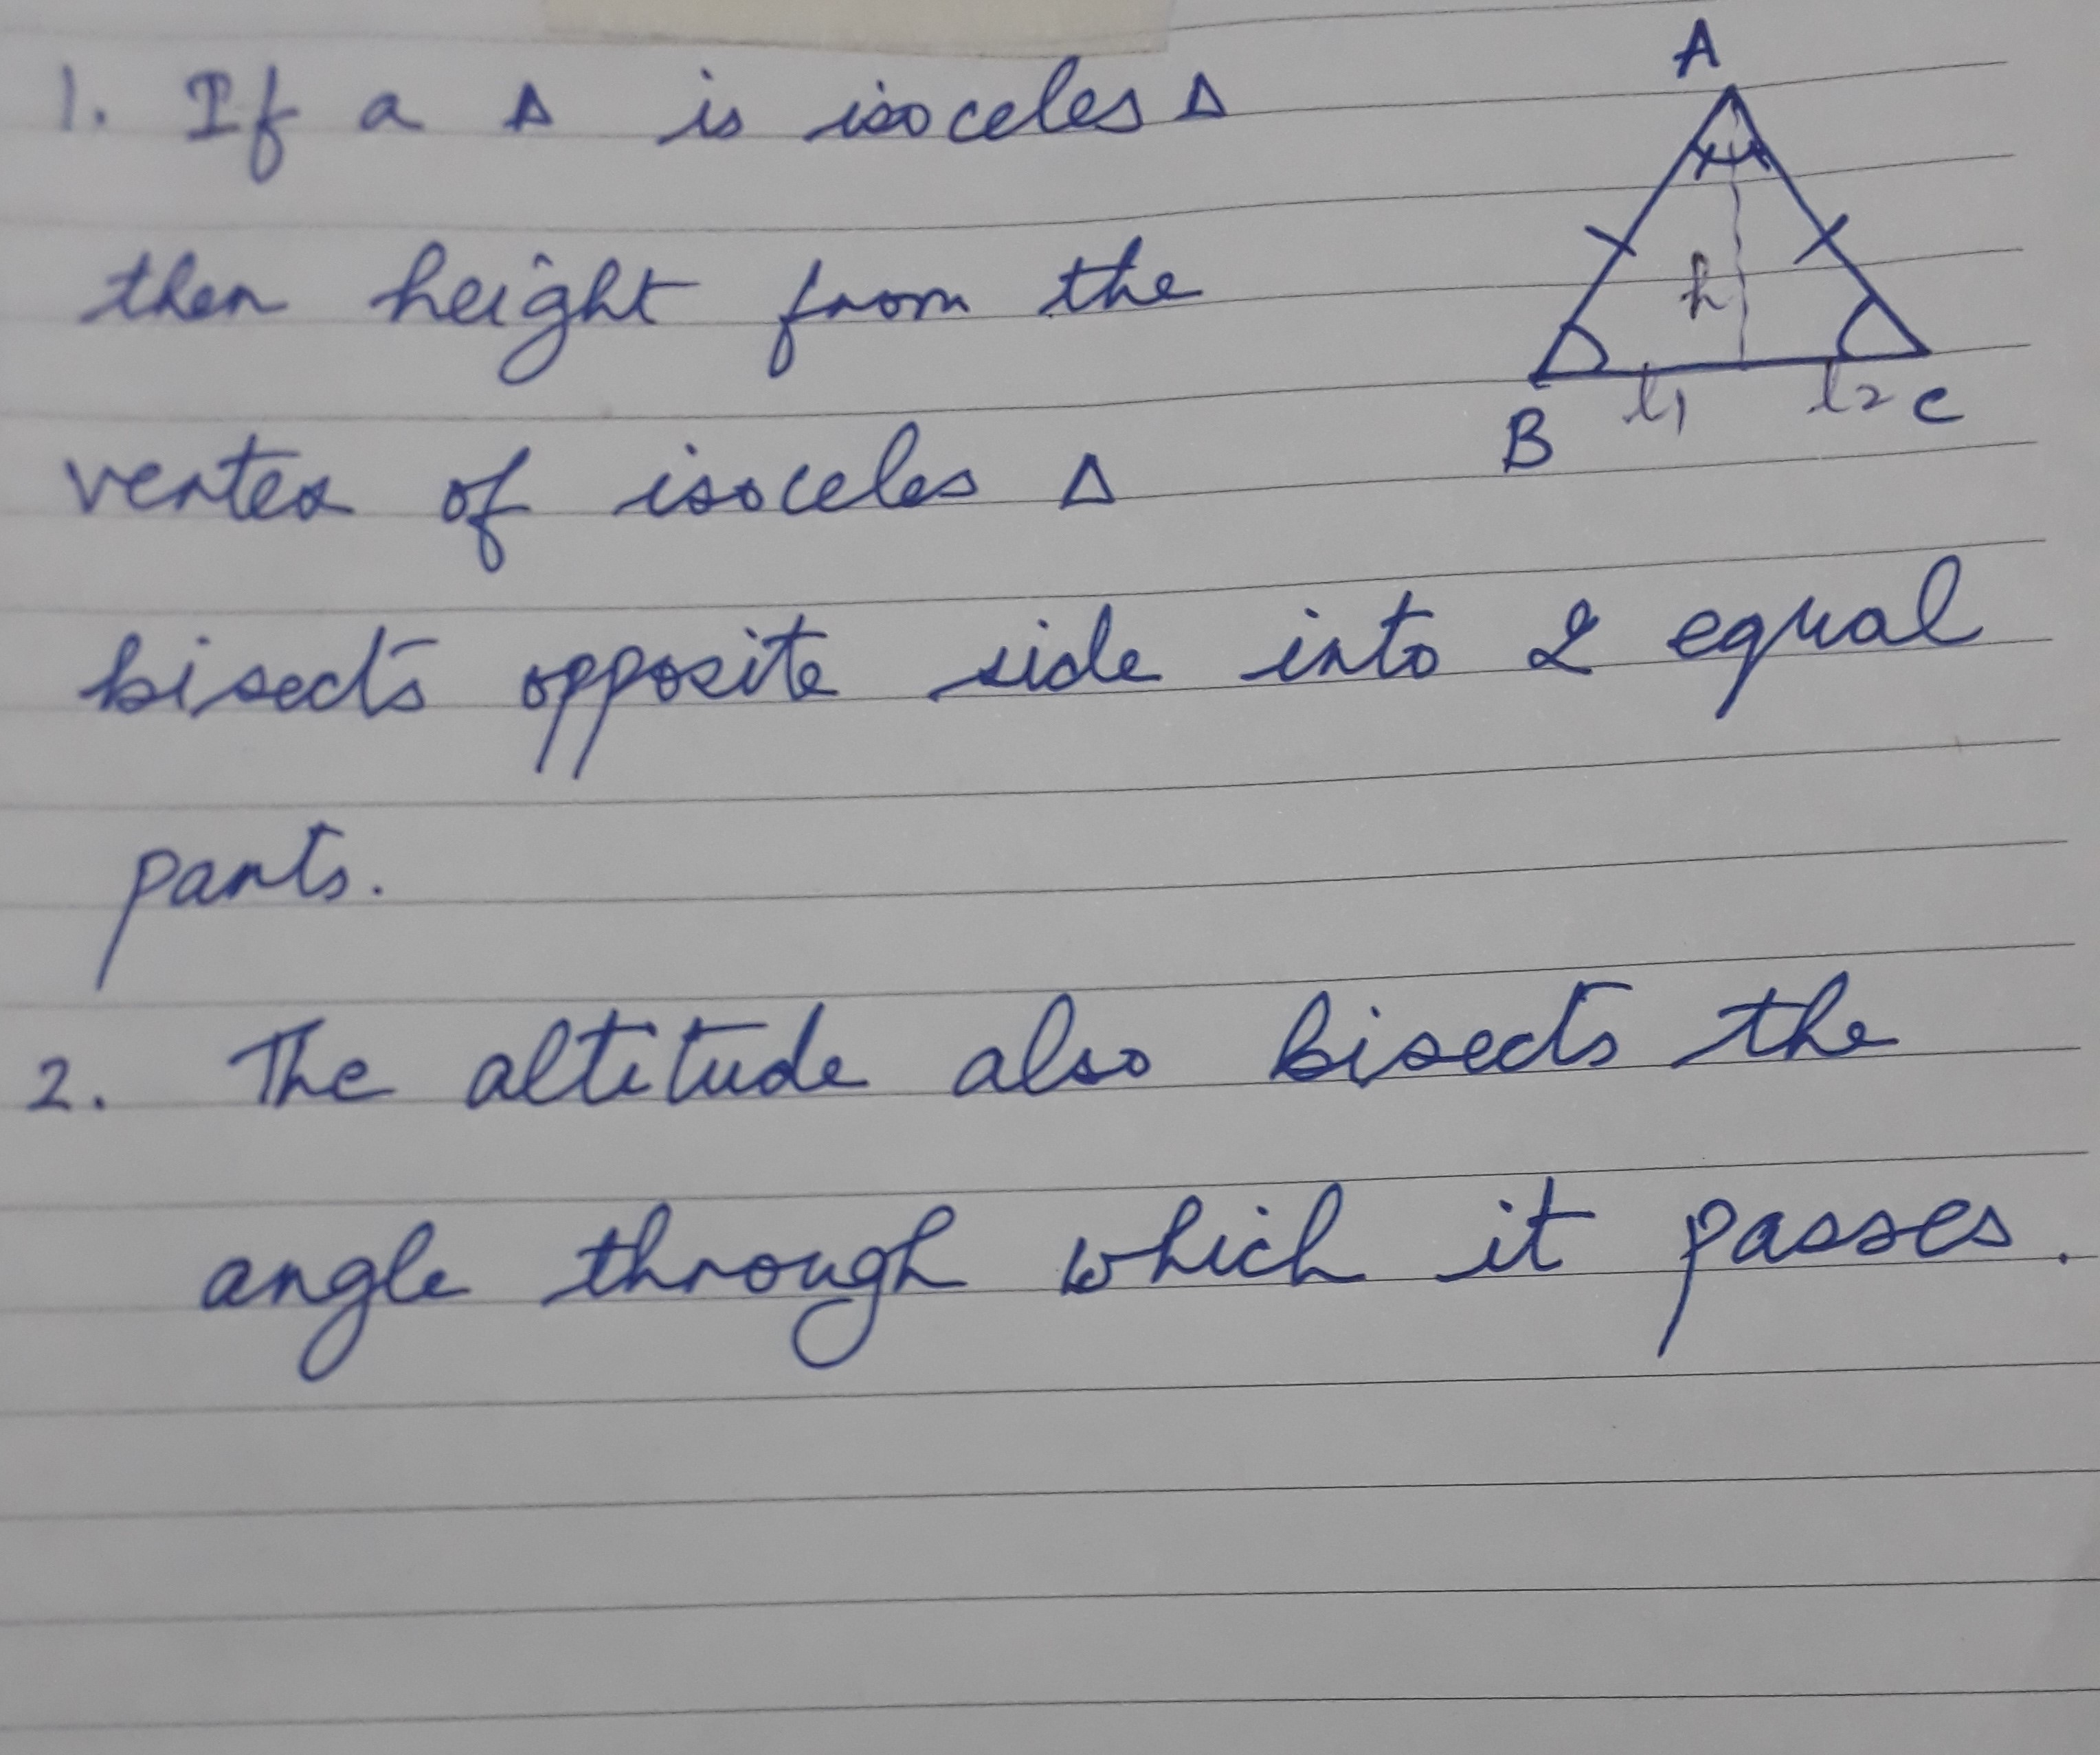 1. If a Δ is isoceles Δ
then height from the
vertex of isoceles Δ
bisects opposite side into 2 equal
parts.
2. The altitude also bisects the
angle through which it passes.
A
h
B l1 l2 C